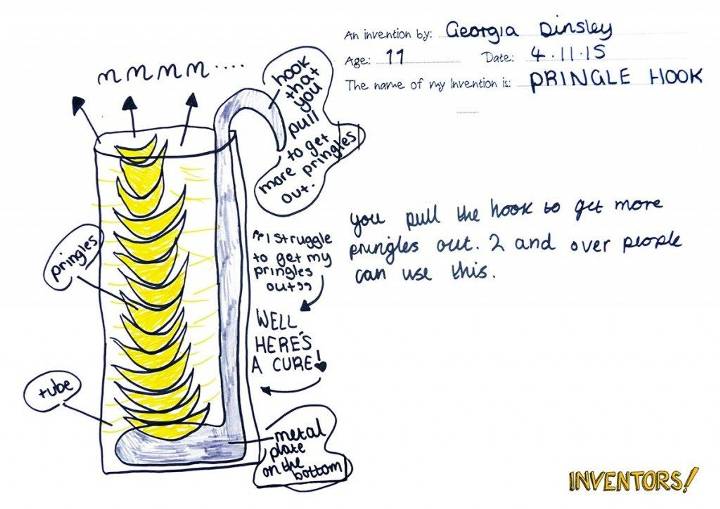 An invention by: Georgia Dinsley
Age: 11 Date: 4.11.15
The name of my invention is: PRINGLE HOOK
mmmm....
hook
that
you
pull
to get
more pringles
out.
pringles
"I struggle
to get my
pringles
out"
WELL
HERE'S
A CURE!
tube
metal
plate
on the
bottom
you pull the hook to get more
pringles out. 2 and over people
can use this.
INVENTORS!